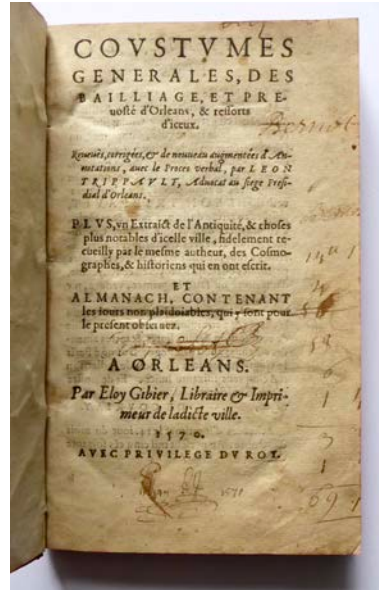 COVSTVMES
GENERALES, DES
BAILLIAGE, ET PRE-
uosté d'Orleans, & ressorts
d'iceux.
Reueuës, corrigées, & de nouueau augmentées d'An-
notations, auec le Proces verbal, par LEON
TRIPPAVLT, Aduocat au siege Presi-
dial d'Orleans.
PLVS, vn Extraict de l'Antiquité, & choses
plus notables d'icelle ville, fidelement re-
cueilly par le mesme autheur, des Cosmo-
graphes, & historiens qui en ont escrit.
ET
ALMANACH, CONTENANT
les iours non plaidoiables, qui y sont pour
le present obseruez.
A ORLEANS.
Par Eloy Gibier, Libraire & Impri-
meur de ladicte ville.
1570.
AVEC PRIVILEGE DV ROY.